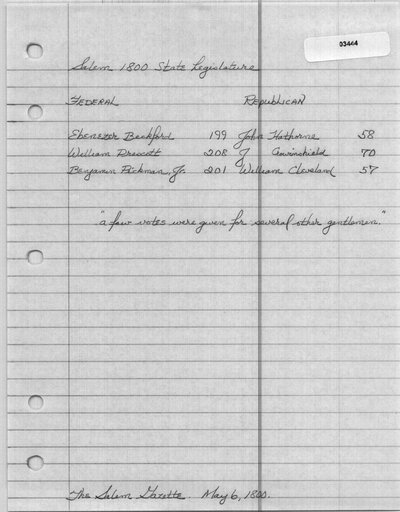 03444
Salem 1800 State Legislature
FEDERAL REPUBLICAN
Ebenezer Beckford 199 John Hathorne 58
William Prescott 208 J. Crowninshield 70
Benjamin Pickman Jr. 201 William Cleveland 57
"a few votes were given for several other gentlemen."
The Salem Gazette. May 6, 1800.